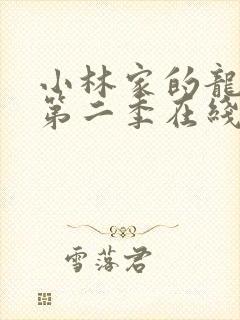 小林家的龍
第二季在綫
雪落君